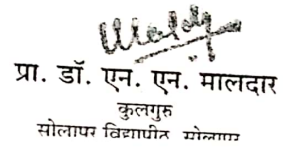 प्रा. डॉ. एन. एन. मालदार
कुलगुरु
सोलापूर विद्यापीठ, सोलापूर